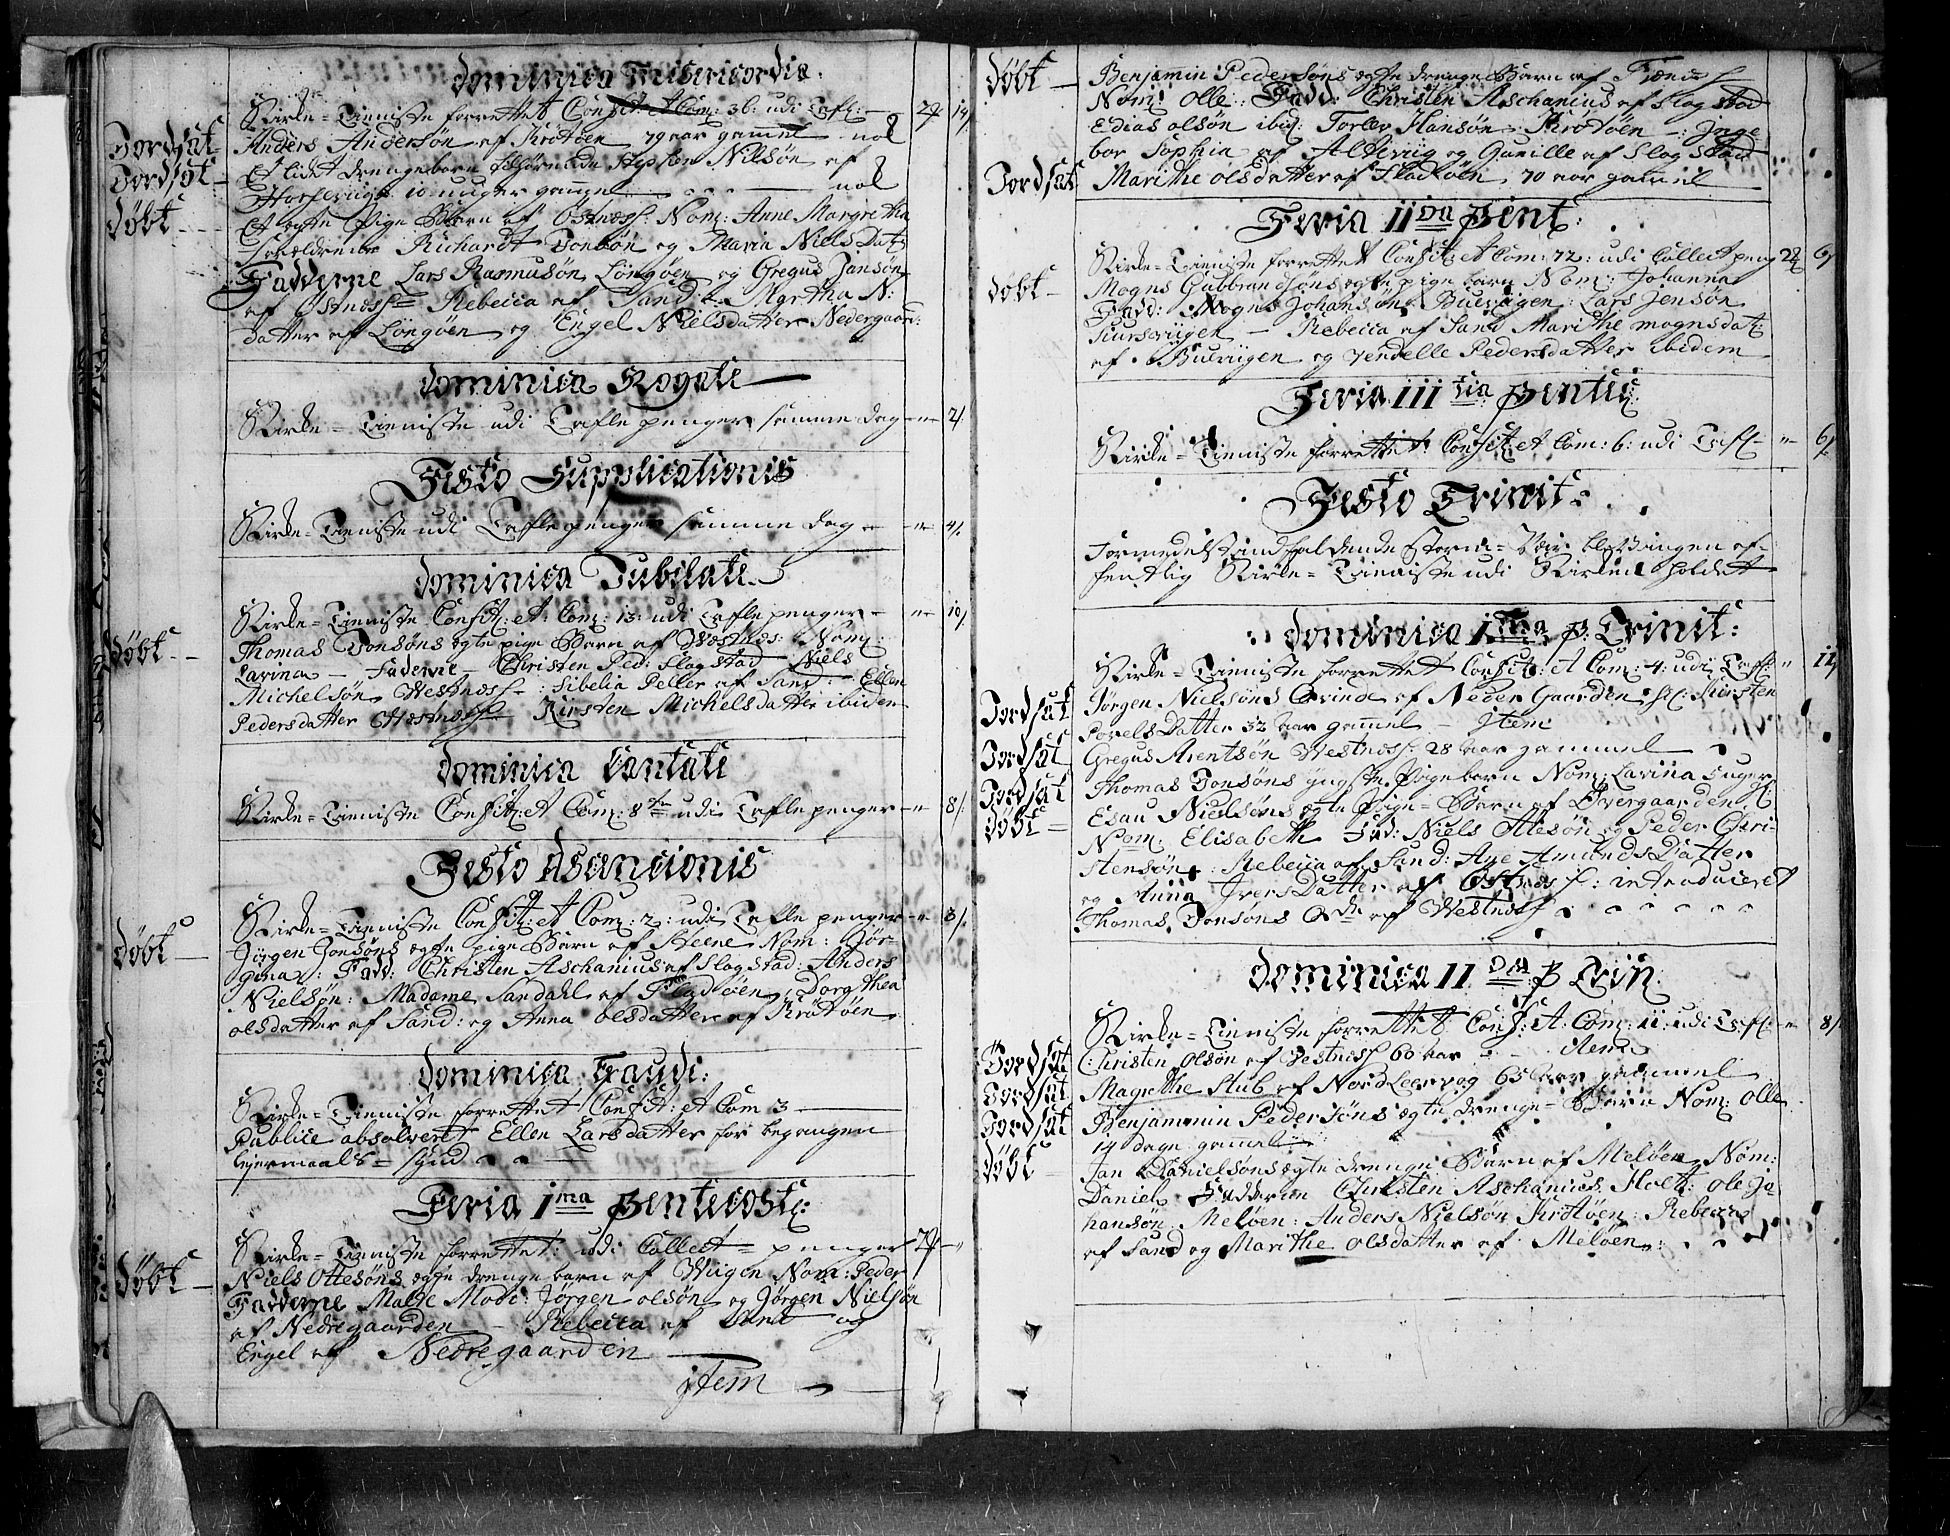 Dominica Misericordia:
Kirke-Tieniste forrettet Confit: et Com: 36: udi Tafl:
Jordsat
Anders Andersøn af Krotøen 79 aar gamel
Jordsat
Et lidet drengebarn Nilsøn af
10 uger gamel
døbt
Et egte Pige Barn af Østness: Nom: Anne Margretha
Forældrene Richardt Jonsøn og Maria Niels Dat:
Fadderne Lars Rasmusøn Löngøen og Gregus Jansøn
af Østness Rebecca af Sand: Mgrtha N:
datter af Löngøen og Engel Nielsdatter Nedergaard:
Dominica Rogate
Kirke-Tieniste udi Tafle penger samme dag 2
Festo Supplicationis
Kirke-Tieniste udi Tafle penger samme dag 4
Dominica Jubilate
Kirke-Tieniste Confit: et: Com: 13: udi Tafle penger 10
døbt
Thomas Jonsøns egte pige Barn af Westness: Nom:
Larina Faderne Christen Ped: Slogstad Niels
Michelsøn Westness: Sibelia Peller af Sand: Ellen
Pedersdatter Westness Kirsten Michelsdatter ibidem
Dominica Cantate
Kirke-Tieniste Confit: et Com: 8 udi Tafle penger 8
Festo Asencionis
Kirke-Tieniste Confit: et Com: 2: udi Tafle penger 3
døbt
Jörgen Jonsøns egte pige Barn af Steene Nom: Jör-
gina: Fadd: Christen Aschanius af Slogstad: Anders
Nielsøn: Madame Sandahl af Fladøen, Dorothea
olsdatter af Sand: og Anna olsdatter af Krotøen
Dominica Exaudi:
Kirke-Tieniste forrettet Confit: et Com 3
Publice absolveret Ellen Larsdatter for begangen
leyermaals-synd
Feria 1ma Pentecost:
Kirke-Tieniste forrettet: udi Collect-penger
døbt
Niels Ottesøns egte drenge barn af Wiigen Nom: Peder
Fadderne Malte Modi: Jörgen olsøn og Jörgen Nielsøn
af Nedregaarden Rebecca af Sand og
Engel af Nedregaarden
item
døbt
Benjamin Pedersøns egte drenge Barn af
Nom: Olle: Fadd: Christen Aschanius af Slogstad
Edias olsøn ibid: Torlev Hansøn Krotøen: Inge
bor Sophia af Alteviig og Gunille af Slogstad
Jordsat
Marithe olsdatter af Fladøen 70 aar gamel
Feria IIda Pent:
Kirke-Tieniste forrettet Confit: et Com: 72: udi Collect peng 6
døbt
Mogns Gubbrandsøns egte pige barn Nom: Johanna
Fadd: Mogns Johansøn Buevigen: Lars Jensøn
Rebecca af Sand Marithe mognsdat:
af Buevigen og Jendelle Pedersdatter ibidem
Feria IIItia Pentec:
Kirke-Tieniste forrettet: Confit: et Com: 6: udi Tafl 6
Festo Trinit:
Formedelst indfaldende storm-Veir blev ingen of-
fentlig Kirke-Tieniste udi Kirken holdet
Dominica 1ma p: Trinit:
Kirke-Tieniste forrettet Confit: et Com: 4: udi Tafl: 11
Jordsat
Jörgen Nielsöns Qvinde af Neder Gaarden Kirsten
Povels Datter 32 Aar gamel Item
Jordsat
Gregus Arentsøn Westness: 28 Aar gammel
Jordsat
Thomas Jonsøns yngste Pige barn Nom: Larina 5 uger
døbt
Esau Nielsøns egte Pige-Barn af Øvergaarden
Nom: Elisabeth Fad: Niels Otesøn og Peder Chri-
stensøn: Rebecca af Sand: Ane Amunds Datter
og Anna Ivers Datter af Østness: introduceret
Thomas Jonsøns Qde af Westness
Dominica IIda p Trin:
Kirke-Tieniste forrettet Conf: et: Com: 11: udi Tafl: 8
Jordsat
Christen Olsøn af Vestness 60 Aar Item
Jordsat
Magrethe Stub af Nord Leervog 65 Aar gammel
Jordsat
Benjammin Pedersøns egte drenge-Barn Nom: Olle
14 dage gamel
døbt
Jan Danielsøns egte drenge Barn af Meløen Nom:
Daniel Fadderne Christen Aschanius Holt: ole Jo-
hansøn Meløen: Anders Nielsøn Krotøen: Rebecca
af Sand og Marithe olsdatter af Meløen